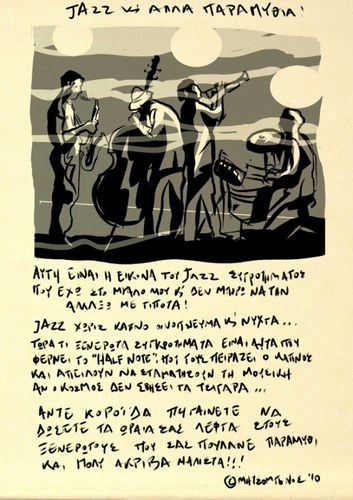 JAZZ κι ΑΛΛΑ ΠΑΡΑΜΥΘΙΑ!
ΑΥΤΗ ΕΙΝΑΙ Η ΕΙΚΟΝΑ ΤΟΥ JAZZ ΣΥΓΚΡΟΤΗΜΑΤΟΣ
ΠΟΥ ΕΧΩ ΣΤΟ ΜΥΑΛΟ ΜΟΥ κι ΔΕΝ ΜΠΟΡΩ ΝΑ ΤΗΝ
ΑΛΛΑΞΩ ΜΕ ΤΙΠΟΤΑ!
JAZZ ΧΩΡΙΣ ΚΑΠΝΟ ΟΙΝΟΠΝΕΥΜΑ κι ΝΥΧΤΑ...
ΤΩΡΑ ΤΙ ΞΕΝΕΡΩΤΑ ΣΥΓΚΡΟΤΗΜΑΤΑ ΕΙΝΑΙ ΑΥΤΑ ΠΟΥ
ΦΕΡΝΕΙ ΤΟ "HALF NOTE", ΠΟΥ ΤΟΥΣ ΠΕΙΡΑΖΕΙ Ο ΚΑΠΝΟΣ
ΚΑΙ ΑΠΕΙΛΟΥΝ ΝΑ ΣΤΑΜΑΤΗΣΟΥΝ ΤΗ ΜΟΥΣΙΚΗ
ΑΝ Ο ΚΟΣΜΟΣ ΔΕΝ ΣΒΗΣΕΙ ΤΑ ΤΣΙΓΑΡΑ...
ΑΝΤΕ ΚΟΡΟΪΔΑ ΠΗΓΑΙΝΕΤΕ ΝΑ
ΔΩΣΕΤΕ ΤΑ ΩΡΑΙΑ ΣΑΣ ΛΕΦΤΑ ΣΤΟΥΣ
ΞΕΝΕΡΩΤΟΥΣ ΠΟΥ ΣΑΣ ΠΟΥΛΑΝΕ ΠΑΡΑΜΥΘΙ
ΚΑΙ ΠΟΛΥ ΑΚΡΙΒΑ ΜΑΛΙΣΤΑ!!!
© '10